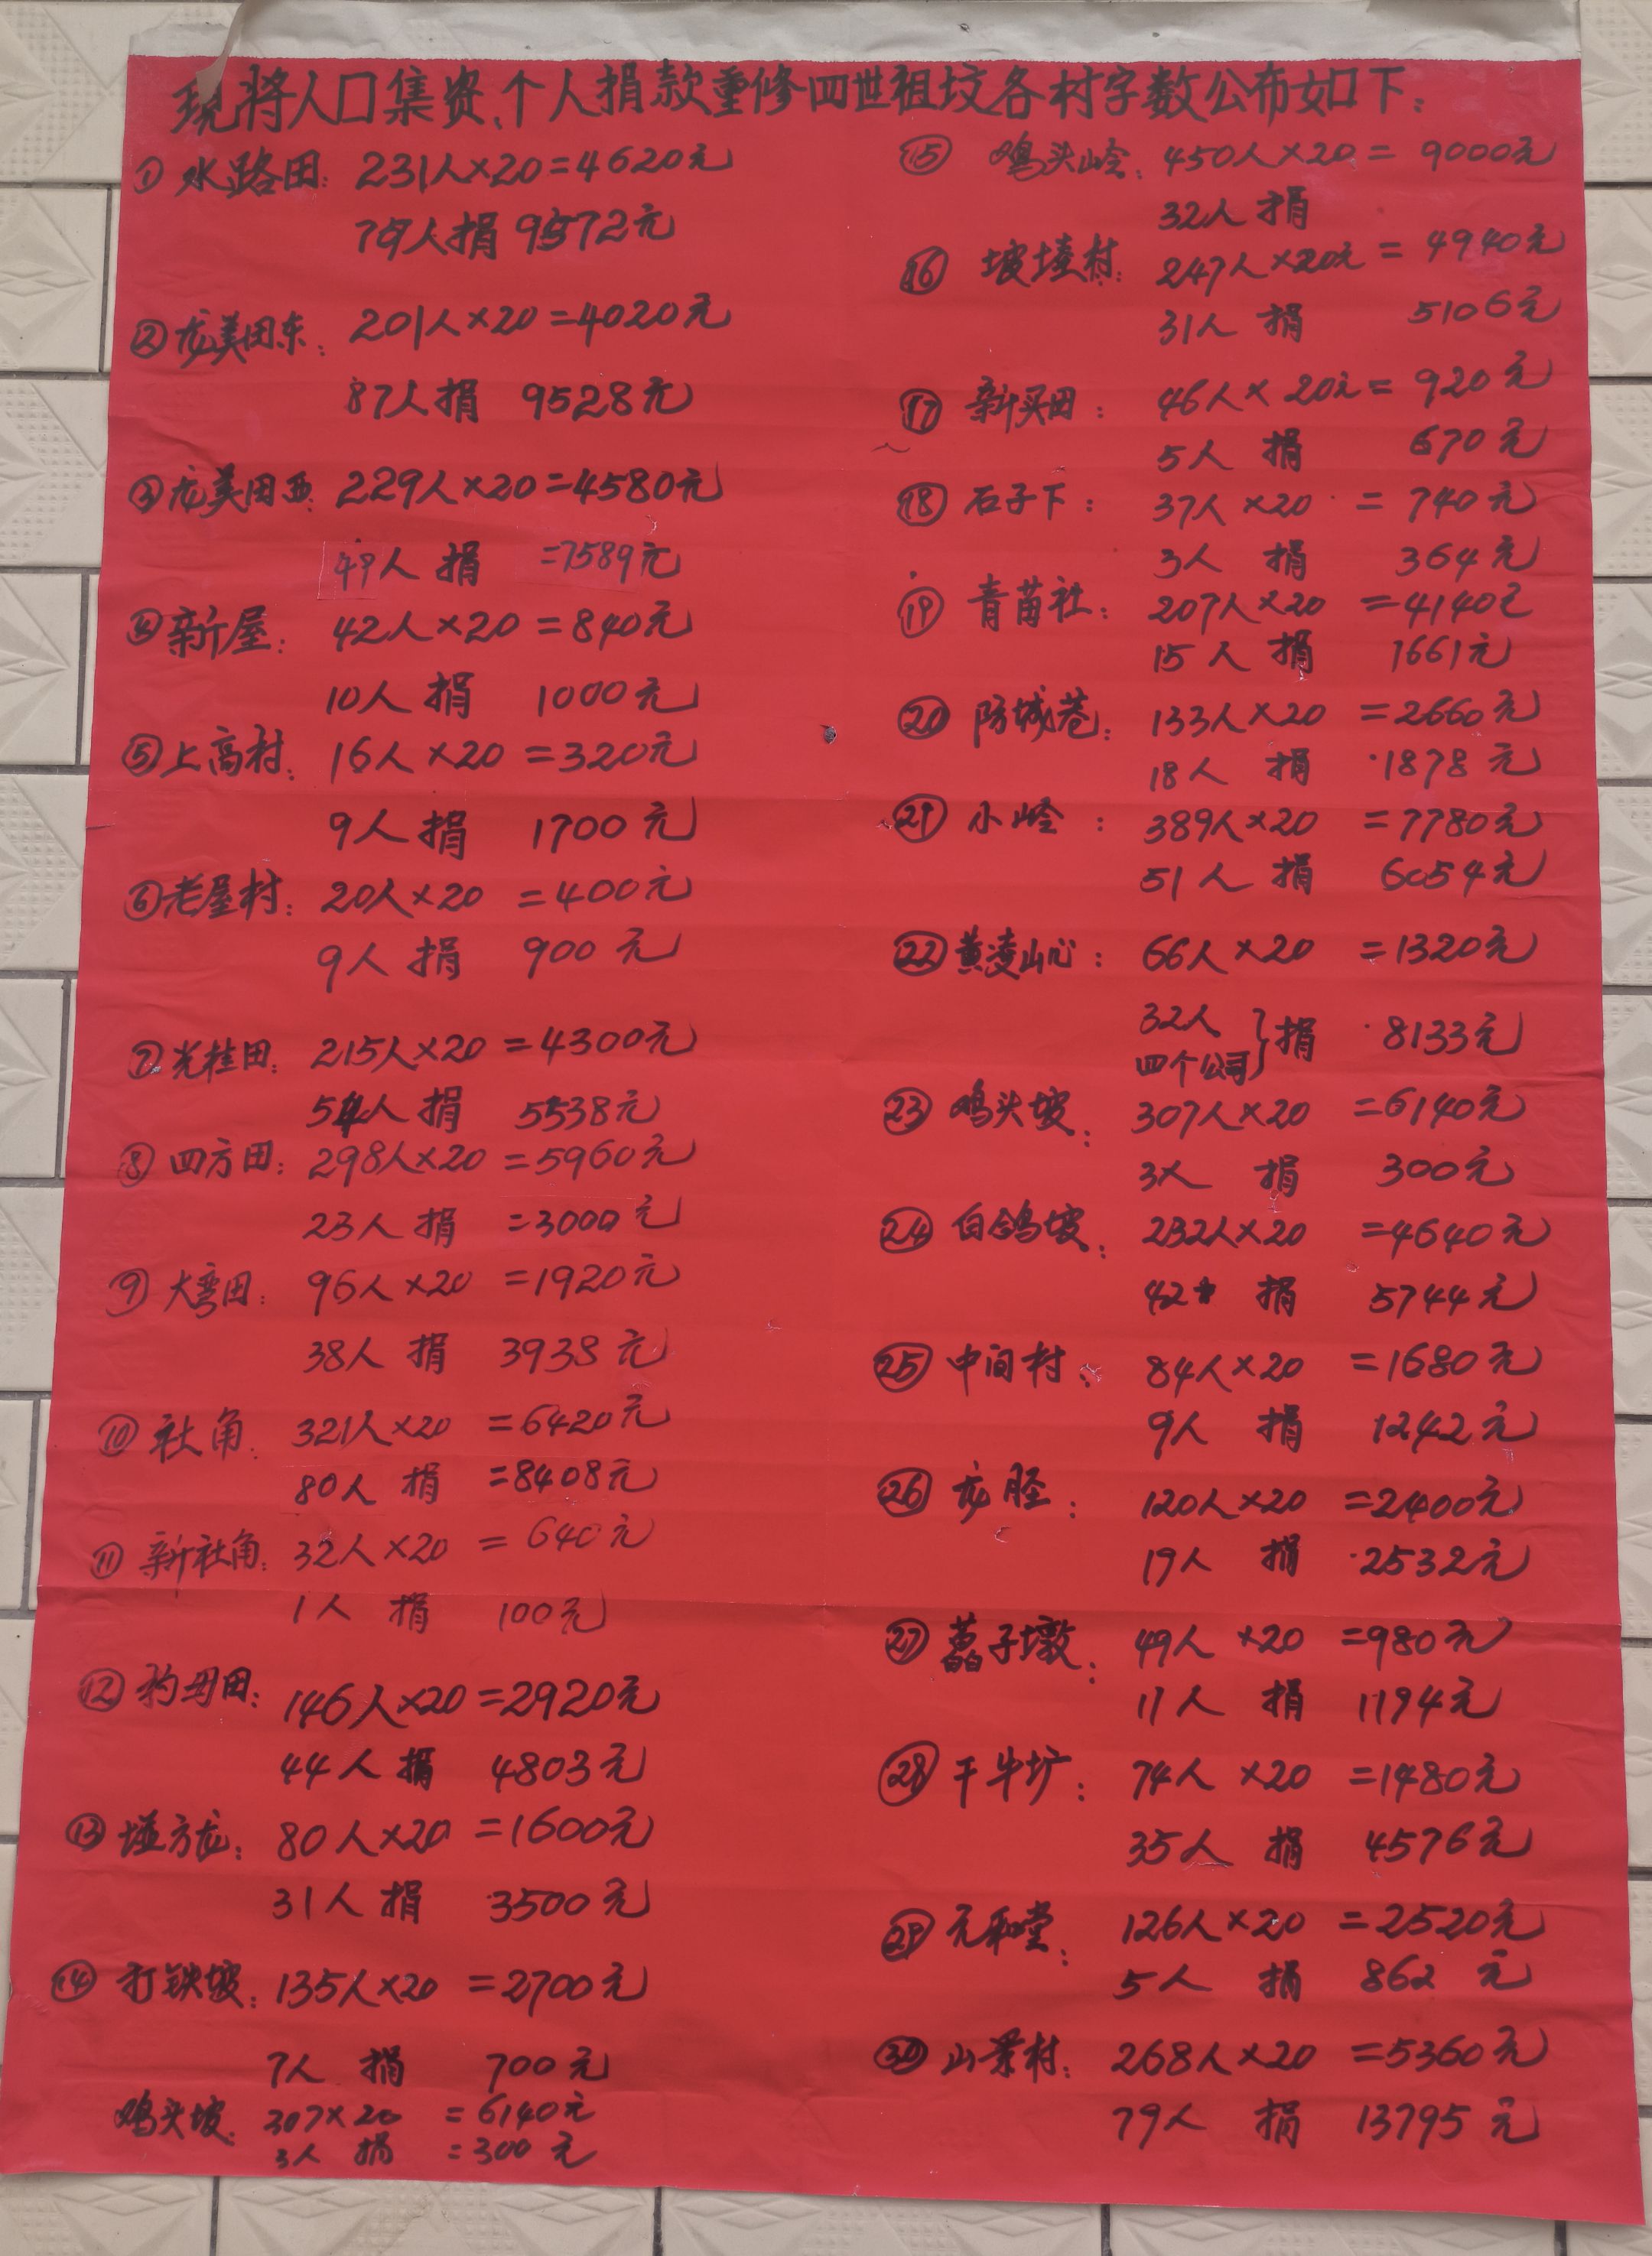 现将人口集资、个人捐款重修四世祖坟各村字数公布如下：
① 水路田：231人×20=4620元
79人捐 9572元
② 龙美田东：201人×20=4020元
87人捐 9528元
③ 龙美田西：229人×20=4580元
49人 捐 =7589元
④ 新屋：42人×20=840元
10人 捐 1000元
⑤ 上高村：16人×20=320元
9人 捐 1700元
⑥ 老屋村：20人×20=400元
9人 捐 900元
⑦ 光桂田：215人×20=4300元
54人 捐 5538元
⑧ 四方田：298人×20=5960元
23人 捐 =3000元
⑨ 大弯田：96人×20=1920元
38人 捐 3938元
⑩ 社角：321人×20=6420元
80人 捐 =8408元
⑪ 新社角：32人×20=640元
1人 捐 100元
⑫ 田：146人×20=2920元
44人 捐 4803元
⑬ 方龙：80人×20=1600元
31人 捐 3500元
⑭ 打铁坡：135人×20=2700元
7人 捐 700元
鸡头坡：307×20=6140元
3人 捐 =300元
⑮ 鸡头岭：450人×20=9000元
32人 捐
⑯ 坡塘村：247人×20元=4940元
31人 捐 5106元
⑰ 新买田：46人×20元=920元
5人 捐 670元
⑱ 石子下：37人×20=740元
3人 捐 364元
⑲ 青苗社：207人×20=4140元
15人 捐 1661元
⑳ 防城巷：133人×20=2660元
18人 捐 1878元
㉑ 小岭：389人×20=7780元
51人 捐 6054元
㉒ 黄凌山心：66人×20=1320元
32人 四个公司}捐 8133元
㉓ 鸡头坡：307人×20=6140元
3人 捐 300元
㉔ 白鸽坡：232人×20=4640元
42人 捐 5744元
㉕ 中间村：84人×20=1680元
9人 捐 1242元
㉖ 龙胫：120人×20=2400元
19人 捐 2532元
㉗ 子墩：49人×20=980元
11人 捐 1194元
㉘ 干牛圹：74人×20=1480元
35人 捐 4576元
㉙ 元和堂：126人×20=2520元
5人 捐 862元
㉚ 山景村：268人×20=5360元
79人 捐 13795元